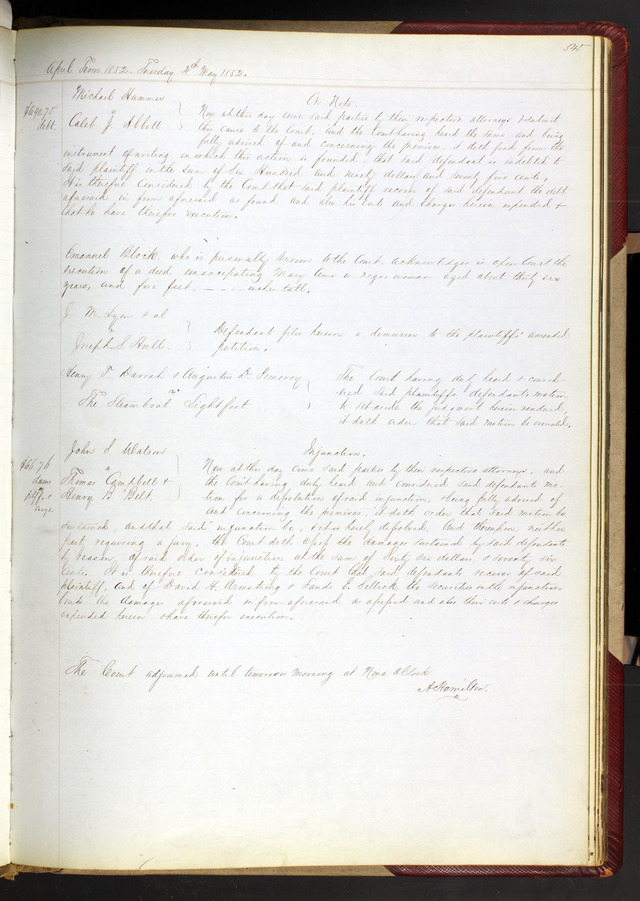 545
April Term 1852. Tuesday 4th May 1852.
Michael Hammer
On Note.
$690.75
debt.
v
Caleb J. Abbott
Now at this day come said parties by their respective attorneys & submit
this cause to the Court. And the Court having heard the same and being
fully advised of and concerning the premises, & doth find from the
instrument of writing on which this action is founded, that said defendant is indebted to
said plaintiff in the sum of Six Hundred and ninety dollars and seventy five cents.
It is therefore Considered by the Court that said plaintiff recover of said defendant the debt
aforesaid in form aforesaid as found and also his costs and charges herein expended &
that he have therefor execution.
Emanuel Block who is personally known to the Court acknowledges in open Court the
execution of a deed emancipating Mary Ann a negro woman aged about thirty six
years, and five feet, - - - - inches tall.
J. M. Lyon & al
v
Joseph S. Hull.
Defendant files herein a demurrer to the plaintiffs amended
petition.
Henry T. Darrah & Augustus D. Pomeroy
vs
The Steamboat Lightfoot
The Court having duly heard & consid-
ered said plaintiffs defendants motion
to set aside the judgment herein rendered,
it doth order that said motion be overruled.
John S. Watson
Injunction.
$66.76
v
Thomas Campbell &
Henry B. Belt.
Now at this day come said parties by their respective attorneys, and
the Court having duly heard and considered said defendants mo-
tion for a dissolution of said injunction, & being fully advised of
and concerning the premises, it doth order that said motion be
sustained, and that said injunction be, & it is hereby dissolved. And thereupon, neither
party requiring a jury, the Court doth assess the damages sustained by said defendants
by reason of said order of injunction at the sum of Sixty Six dollars & seventy six
cents. It is therefore considered by the Court that said defendants recover of said
plaintiff, and of David H. Armstrong & the securities in the injunction
bond the damages aforesaid in form aforesaid as assessed and also their costs & charges
expended herein & have therefor execution.
The Court adjourned until tomorrow morning at Nine O'Clock.
A. Hamilton.